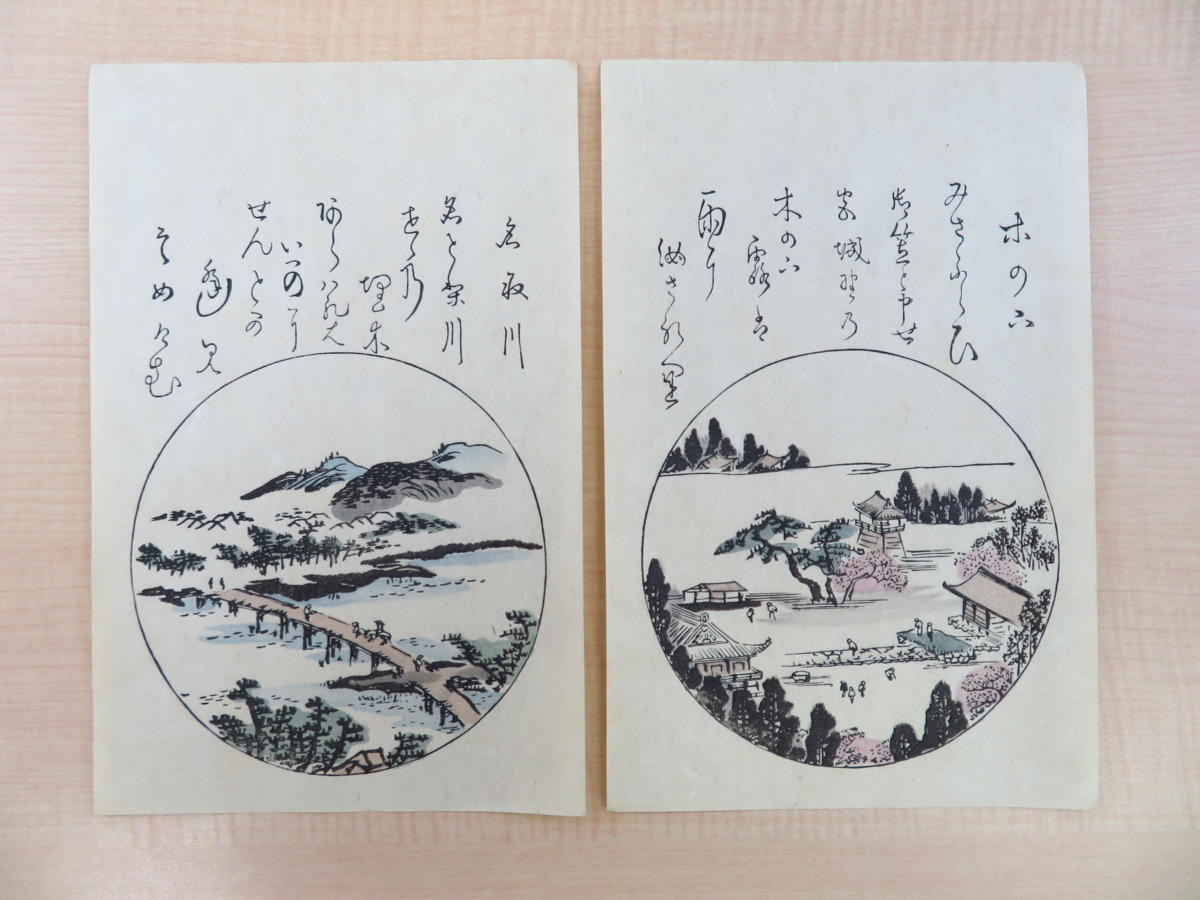 木の下
みさふらひ
御笠と申せ
宮城野乃
木の下
露は
雨に
まされ里
名取川
名とり川
せゝ乃
埋木
あらハれは
いかに
せんとか
逢見
そめけむ